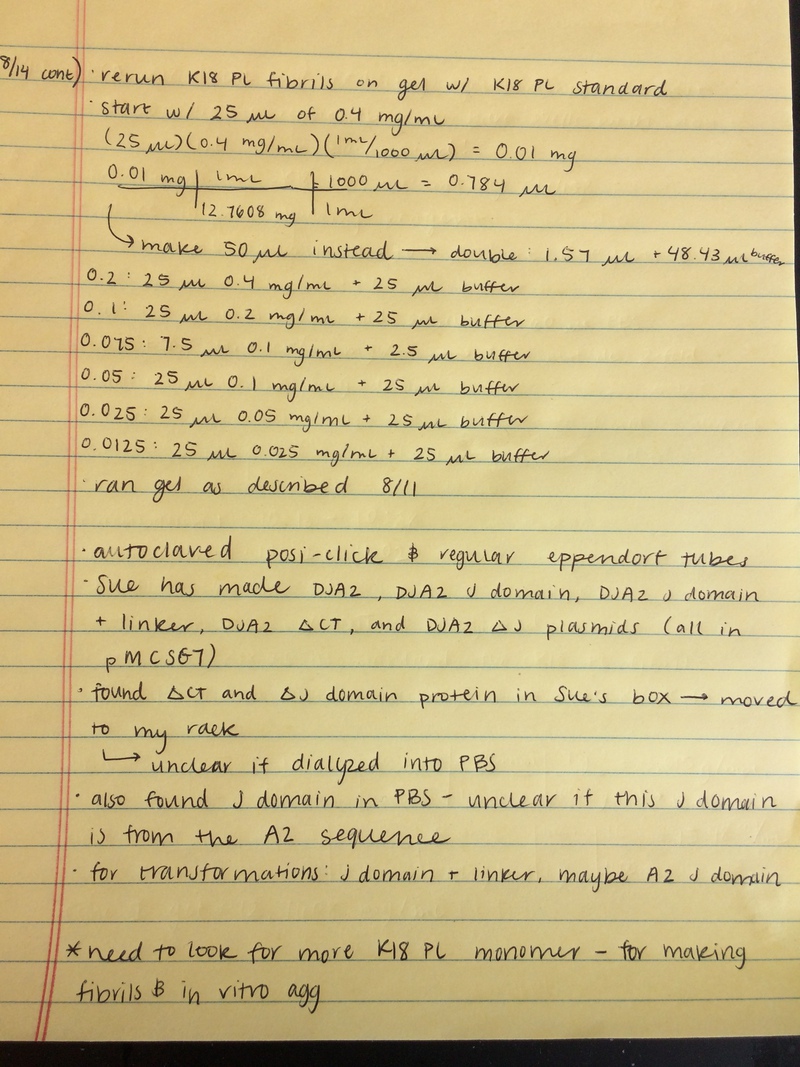 8/14 cont) · rerun K18 PL fibrils on gel w/ K18 PL standard
· start w/ 25 µL of 0.4 mg/mL
(25 µL)(0.4 mg/mL)(1mL/1000 µL) = 0.01 mg
0.01 mg | 1mL | 1000 µL = 0.784 µL
| 12.7608 mg | 1mL
↳ make 50 µL instead → double: 1.57 µL + 48.43 µL buffer
0.2: 25 µL 0.4 mg/mL + 25 µL buffer
0.1: 25 µL 0.2 mg/mL + 25 µL buffer
0.075: 7.5 µL 0.1 mg/mL + 2.5 µL buffer
0.05: 25 µL 0.1 mg/mL + 25 µL buffer
0.025: 25 µL 0.05 mg/mL + 25 µL buffer
0.0125: 25 µL 0.025 mg/mL + 25 µL buffer
· ran gel as described 8/11
· autoclaved posi-click & regular eppendorf tubes
· Sue has made DJA2, DJA2 J domain, DJA2 J domain
+ linker, DJA2 ΔCT, and DJA2 ΔJ plasmids (all in
pMCSG7)
· found ΔCT and ΔJ domain protein in Sue's box → moved
to my rack
↳ unclear if dialyzed into PBS
· also found J domain in PBS - unclear if this J domain
is from the A2 sequence
· for transformations: J domain + linker, maybe A2 J domain
* need to look for more K18 PL monomer - for making
fibrils & in vitro agg